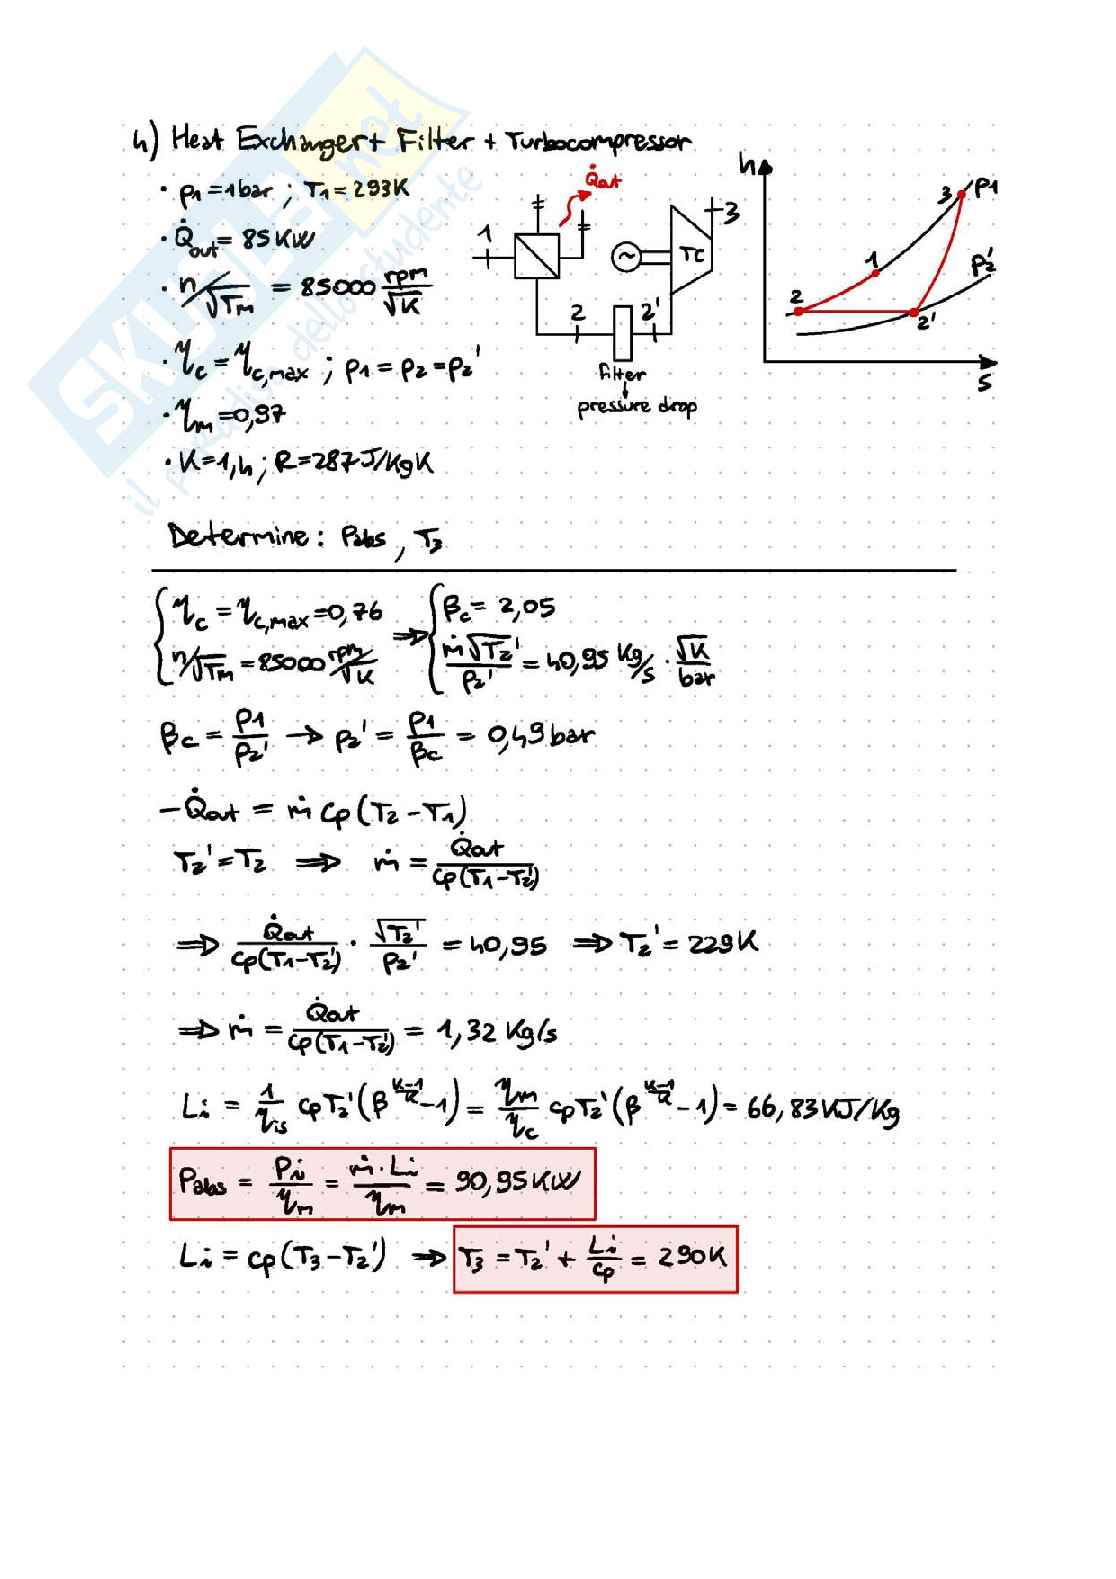 4) Heat Exchanger + Filter + Turbocompressor
• p1 = 1 bar ; T1 = 293 K
• Q̇out = 85 KW
• n/√Tm = 85000 rpm/√K
• ηc = ηc,max ; p1 = p2 = p2'
• ηm = 0,97
• K = 1,4 ; R = 287 J/Kg K
Q̇out
1
2
2'
3
TC
~
filter
pressure drop
h
3
p1
1
p2'
2
2'
s
Determine : Pabs , T3
{ ηc = ηc,max = 0,76 ⇒ { βc = 2,05
n/√Tm = 85000 rpm/√K    ṁ√T2'/p2' = 40,95 Kg/s · √K/bar
βc = p1/p2' → p2' = p1/βc = 0,49 bar
−Q̇out = ṁ cp (T2 − T1)
T2' = T2 ⇒ ṁ = Q̇out/cp(T1 − T2')
⇒ Q̇out/cp(T1 − T2') · √T2'/p2' = 40,95 ⇒ T2' = 229 K
⇒ ṁ = Q̇out/cp(T1 − T2') = 1,32 Kg/s
Li = 1/ηis cp T2' (β^(K−1/K) − 1) = ηm/ηc cp T2' (β^(K−1/K) − 1) = 66,83 KJ/Kg
Pabs = Pi/ηm = ṁ · Li/ηm = 90,95 KW
Li = cp (T3 − T2') ⇒ T3 = T2' + Li/cp = 290 K
SKUOLA.net
il paradiso dello studente